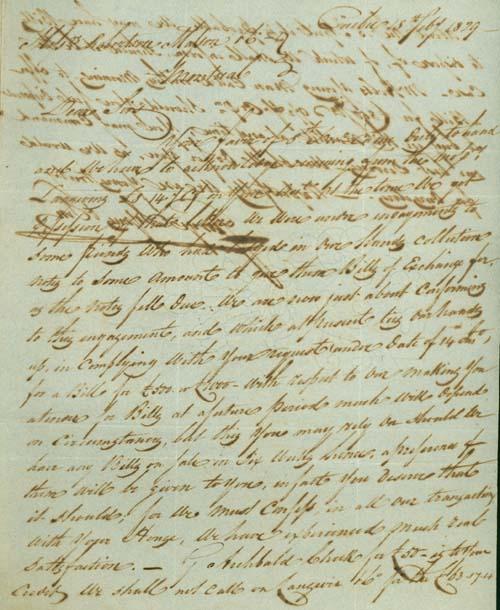 15th Sept 1829
Montreal
Dear Sir
Your favor of
and we have to acknowledge receiving from
by the time we got
possession of that letter We Were under engagement to
some friends Who had in our hands collection
notes to some Amounts to give them Bills of Exchange for
as the notes fell due. We are now just about Conforming
to this engagement, and which at present ties our hands
up, in Complying With Your request under date of 14th
for a Bill for £500 or £1000 With respect to our Making You
an offer for Bills at a future period much Will depend
on Circumstances, but this You may rely on Should We
have any Bills on Sale in Six Weeks hence, a preference of
them Will be given to You, in fact You deserve that
it Should, for We Must Confess, in all our transactions
With Your House, We have experienced Much real
Satisfaction. — Archbald Check for £50 is to Your
Credit We shall not Call on for the